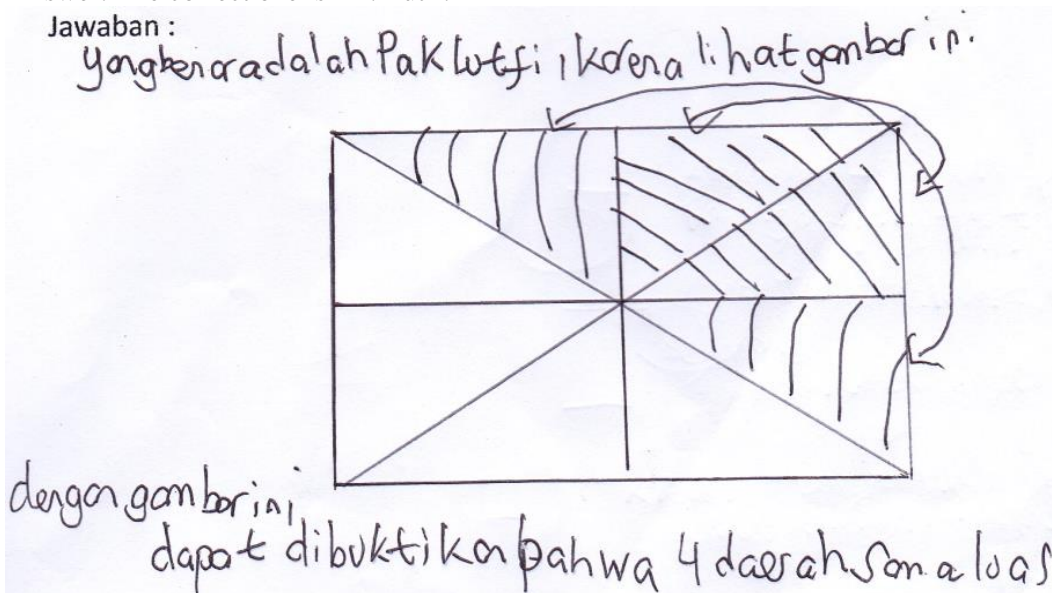 Jawaban :
yang benar adalah Pak Lutfi, karena lihat gambar ini.
dengan gambar ini,
dapat dibuktikan bahwa 4 daerah sama luas